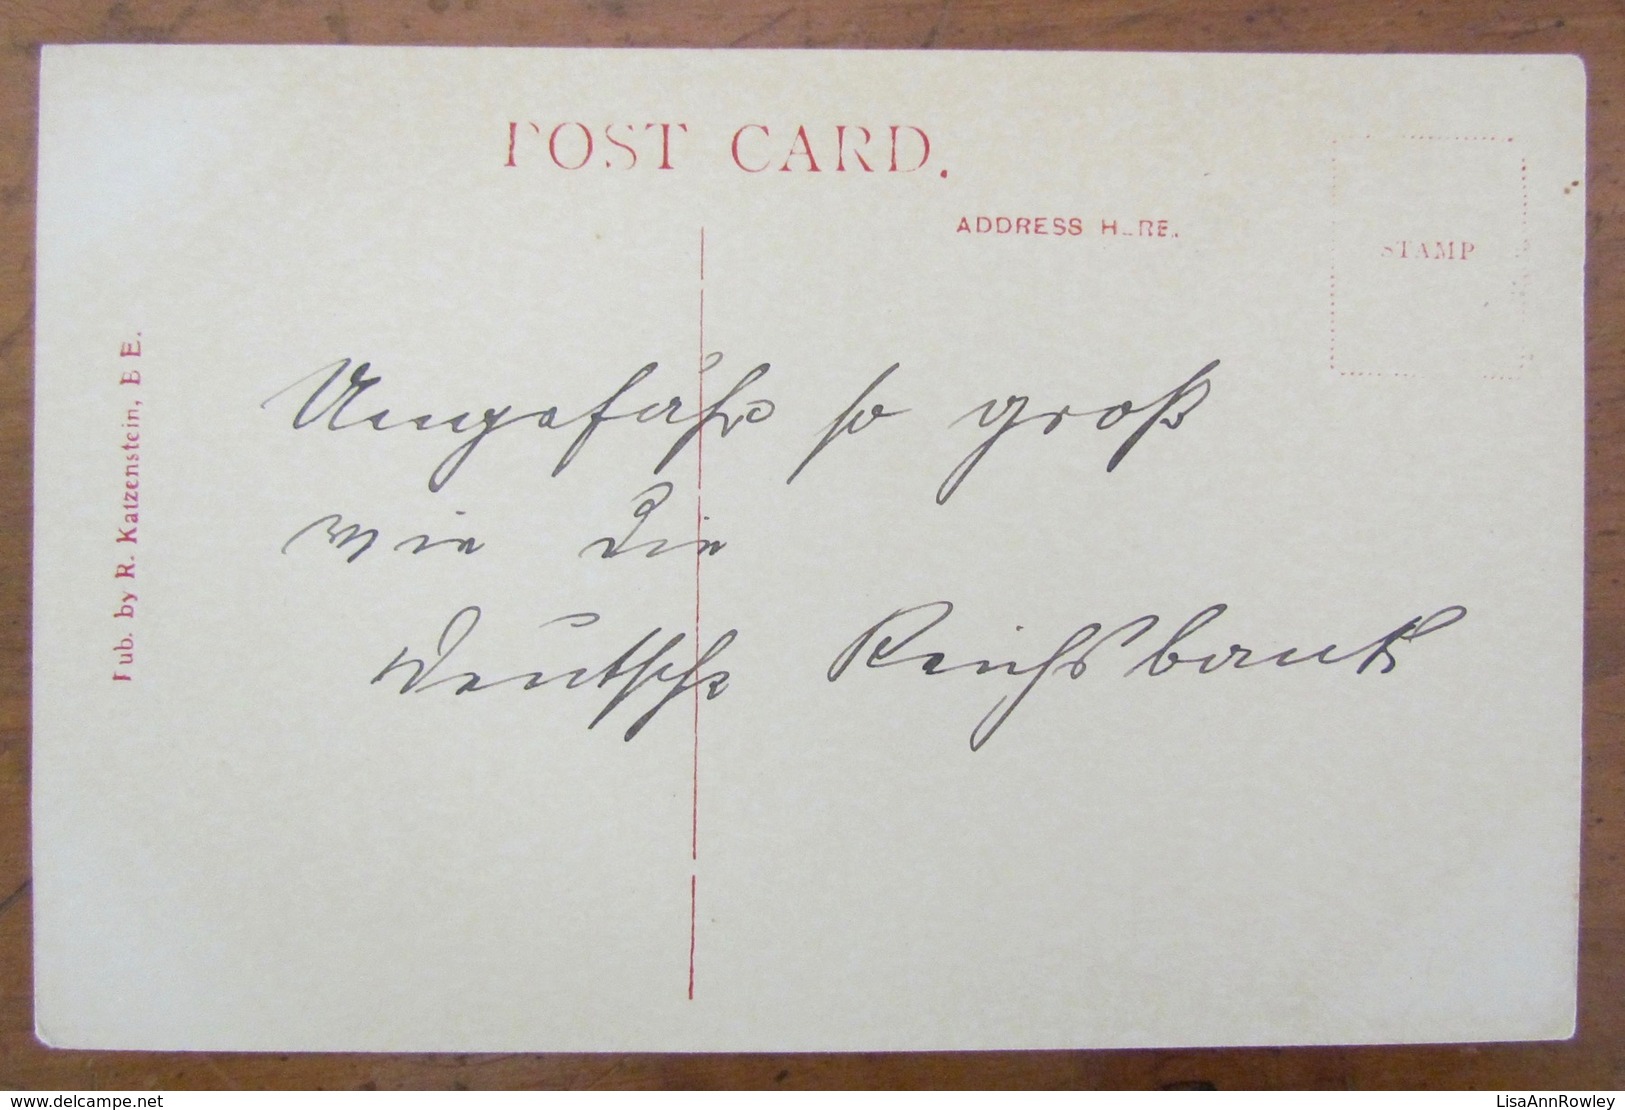 POST CARD.
ADDRESS HERE.
STAMP
Pub. by R. Katzenstein, B E.
Ungefähr so groß
wie die
Deutsche Reichsbank
www.delcampe.net
LisaAnnRowley